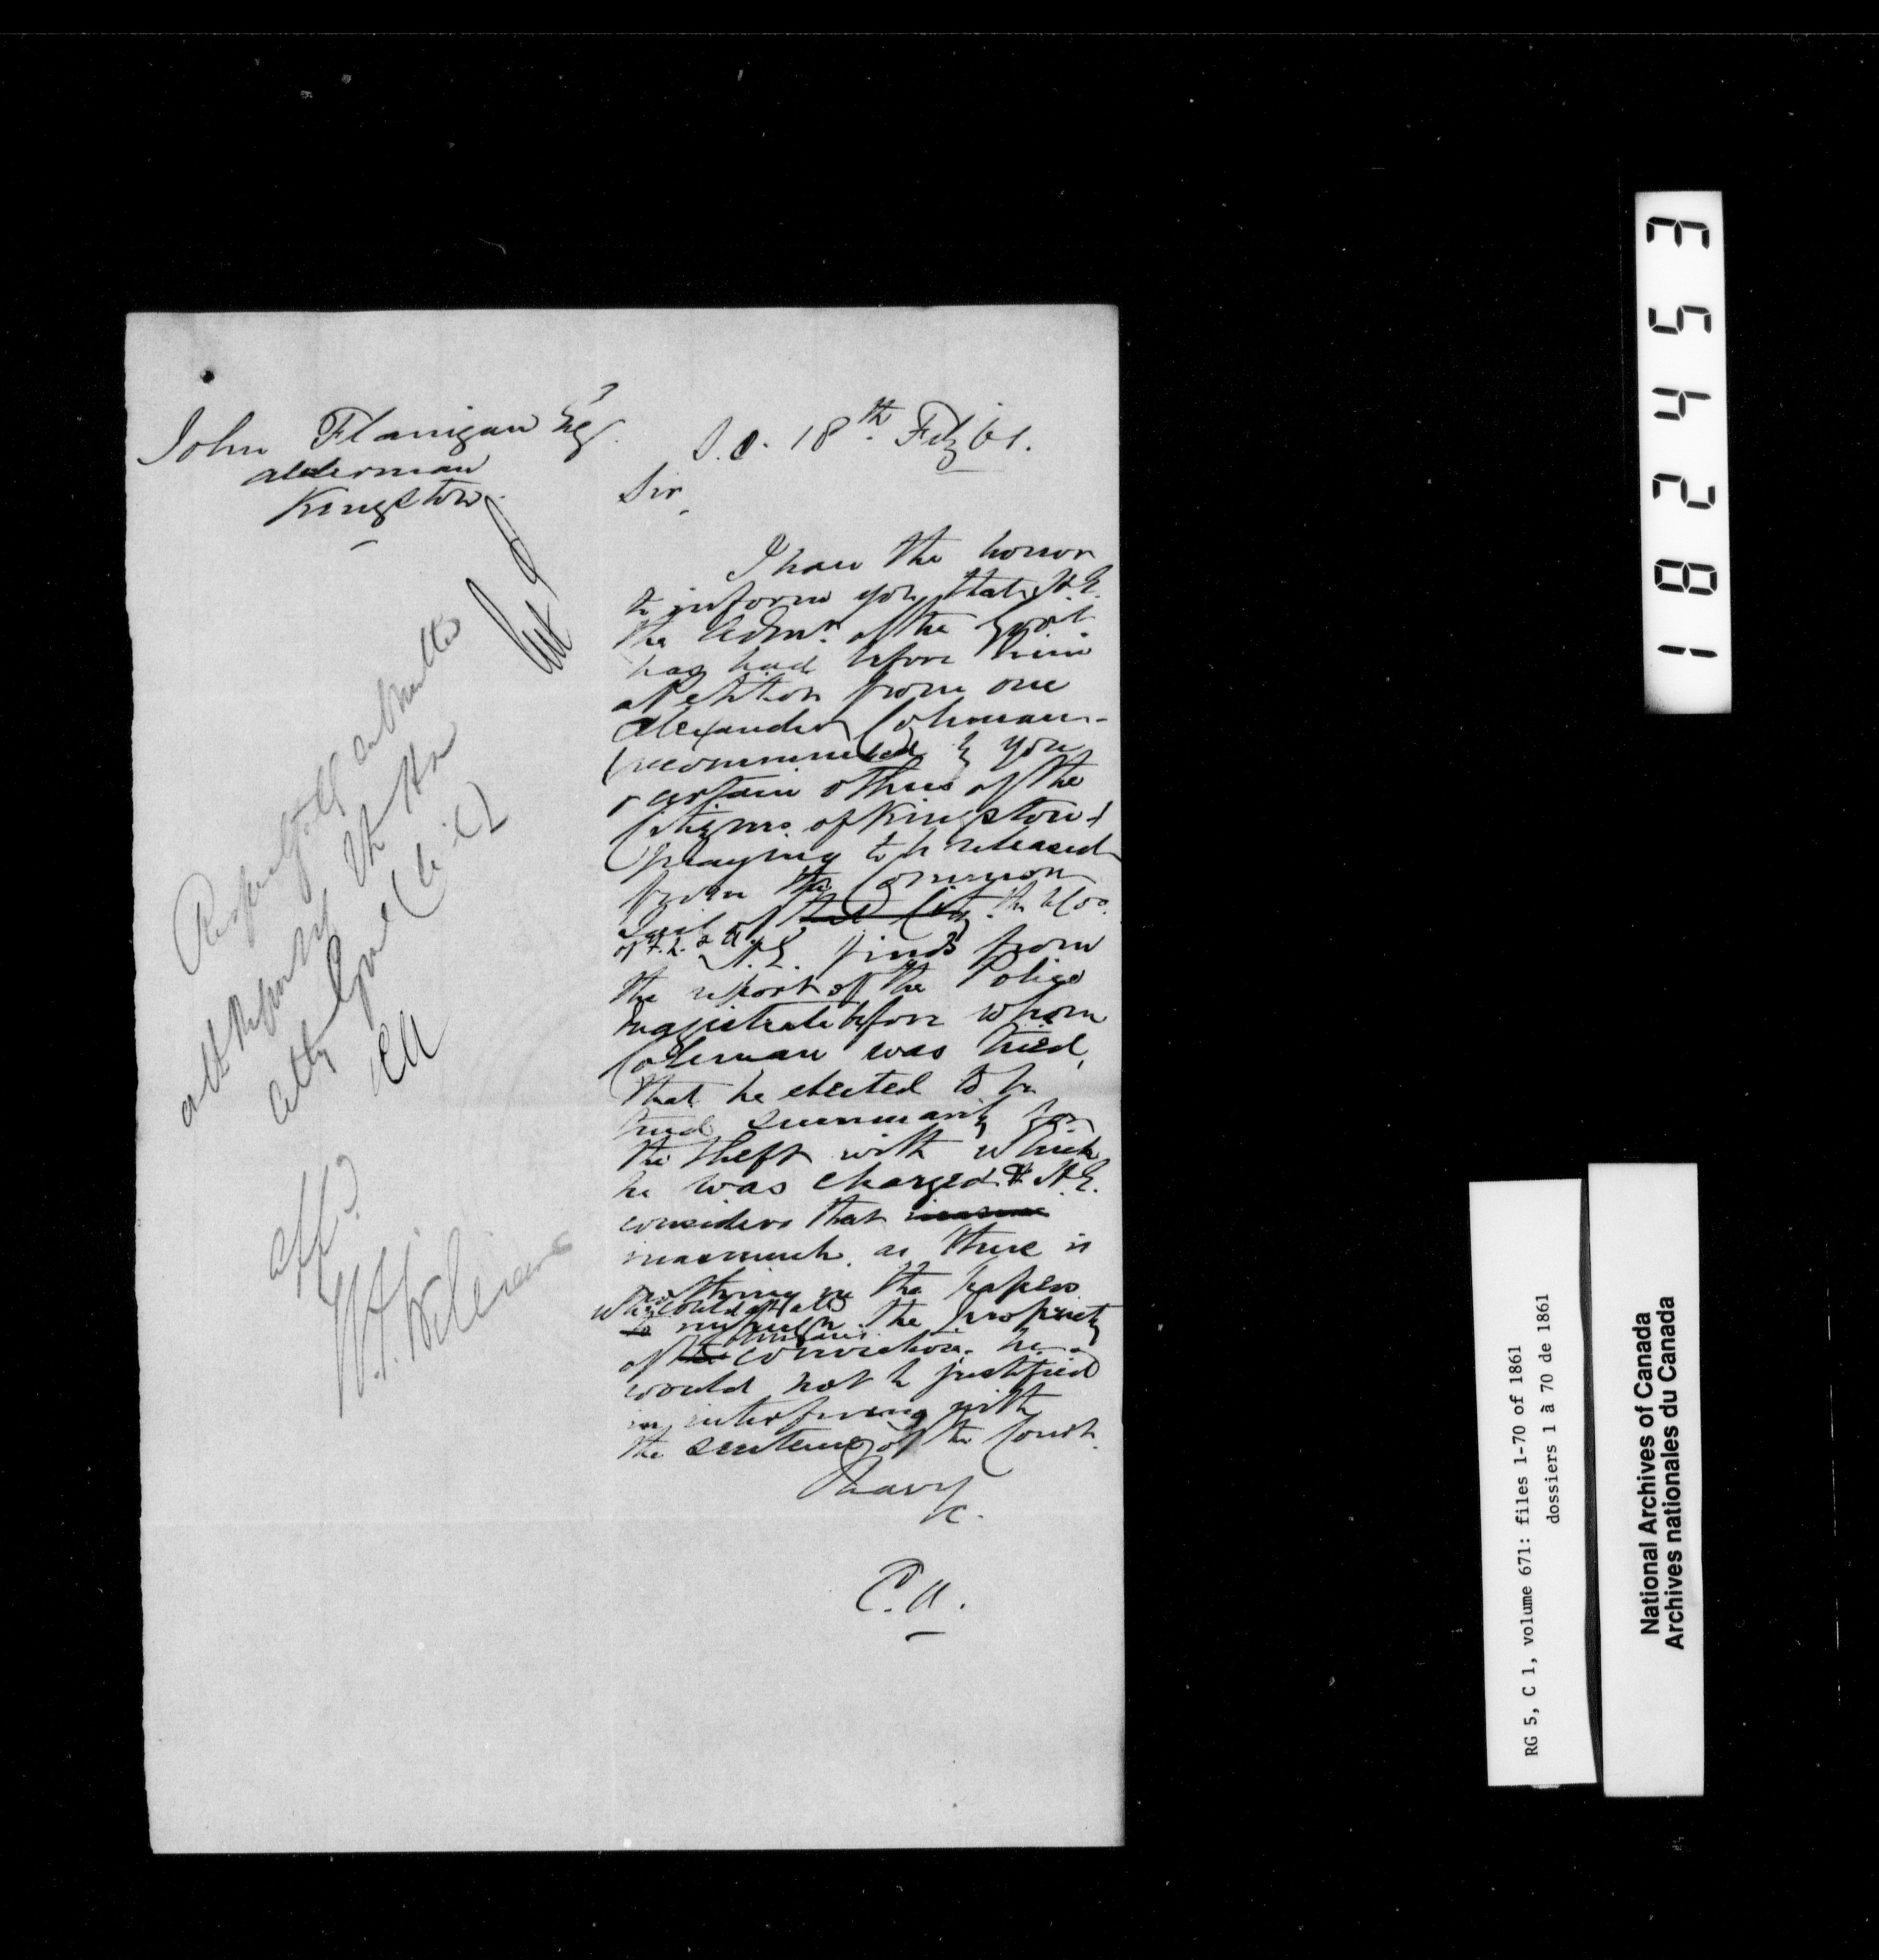 John Flanigan Esqr.
Alderman
Kingston
S.O. 18th Feby 61.
Sir,
I have the honor
to inform you that H.E.
the Admr. of the Govt
has had before him
a Petition from one
Alexander Coleman
recommended by you
& certain others of the
Citizens of Kingston
praying to be released
from the Common
Gaol of that City the U. Cos.
of F. L. & A. H.E. finds from
the report of the Police
Magistrate before whom
Coleman was tried,
that he elected to be
tried summarily for
the theft with which
he was charged & H.E.
considers that
inasmuch as there is
nothing in the papers
which could at all
to impugn the propriety
of the conviction he
would not be justified
in interfering with
the sentence of the Court.
I have
&c.
C.A.
Respectfully submitted
Atty General (U.C.)
CA
Appd.
RG 5, C 1, volume 671: files 1-70 of 1861
dossiers 1 à 70 de 1861
National Archives of Canada
Archives nationales du Canada
1 8 2 4 5 3